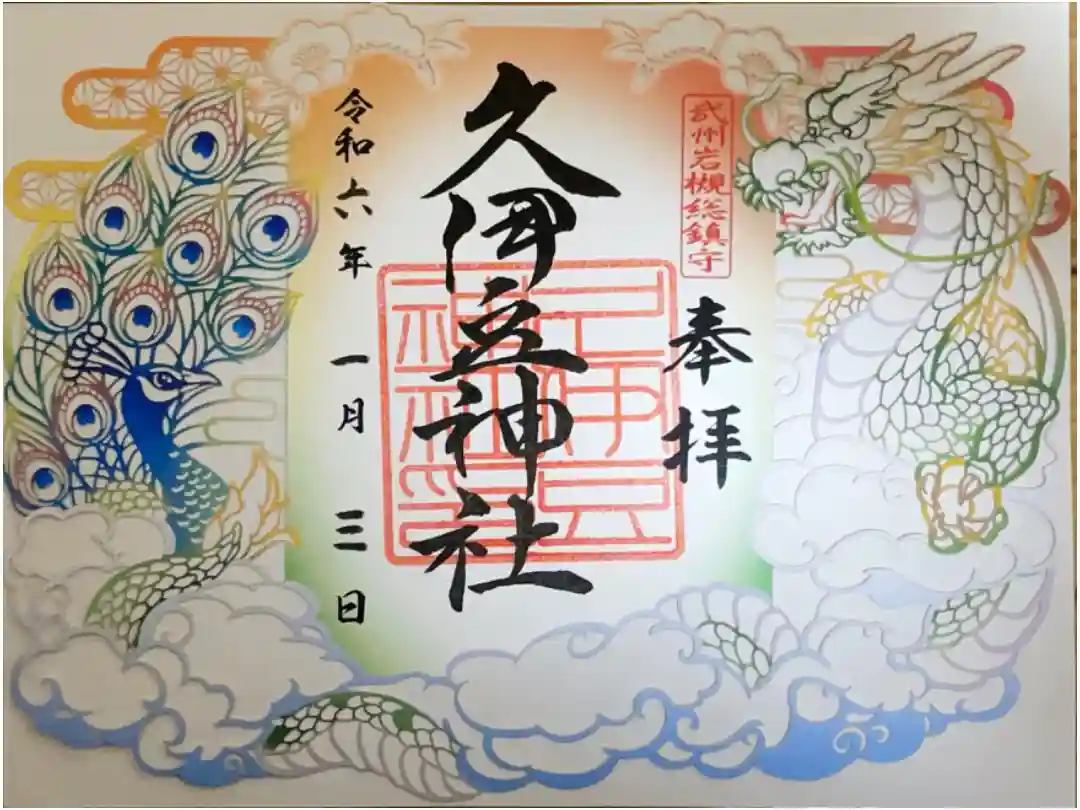 武州岩槻総鎮守
奉拝
久伊豆神社
令和六年一月三日